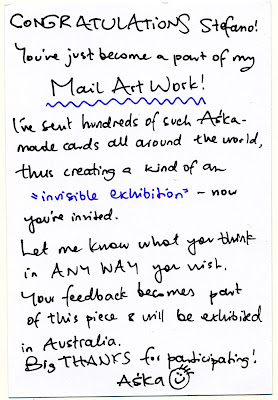 CONGRATULATIONS Stefano!
You've just become a part of my
Mail Art Work!
I've sent hundreds of such Aśka-
made cards all around the world,
thus creating a kind of an
"invisible exhibition" – now
you're invited.
Let me know what you think
in ANY WAY you wish.
Your feedback becomes part
of this piece & will be exhibited
in Australia.
Big THANKS for participating!
Aśka